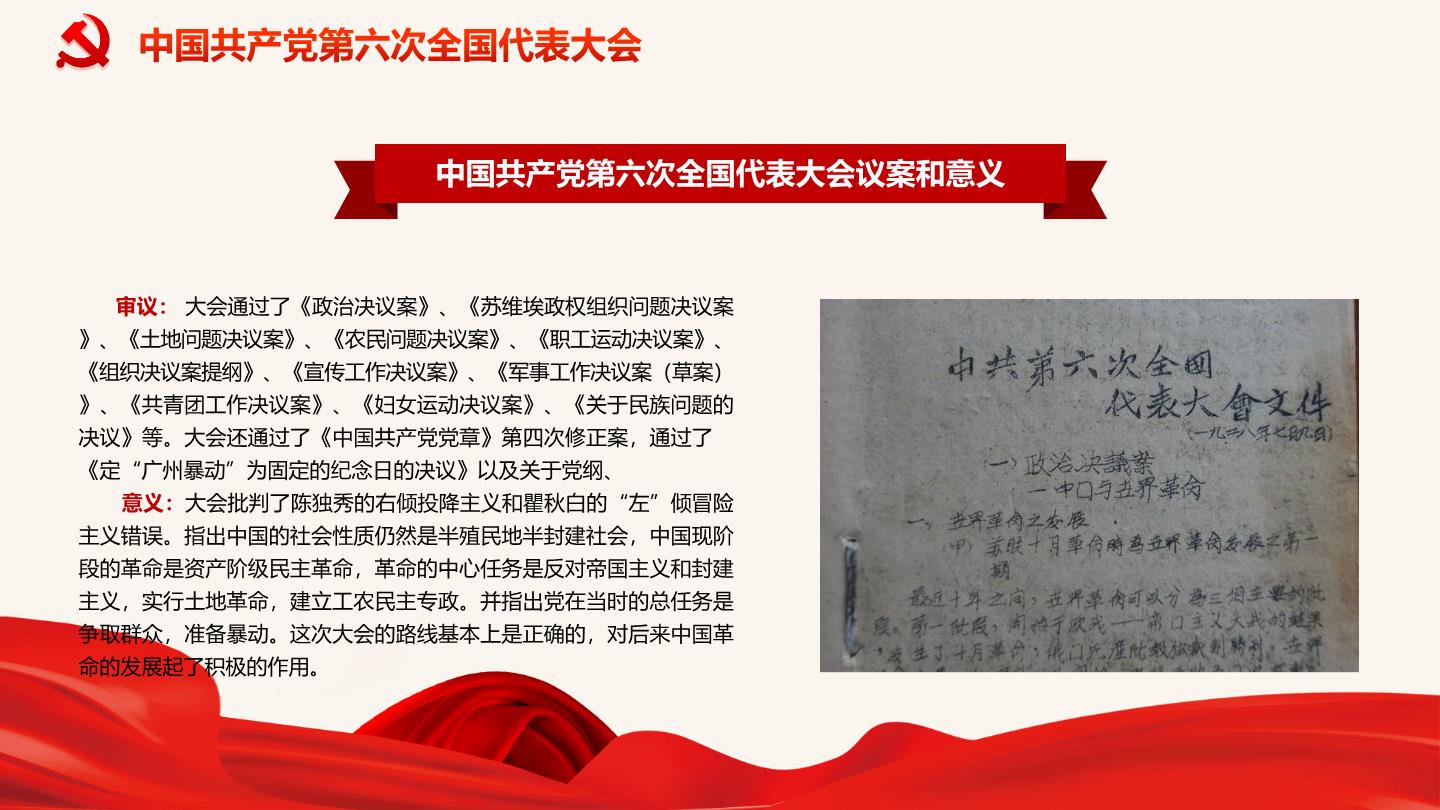 中国共产党第六次全国代表大会
中国共产党第六次全国代表大会议案和意义
审议： 大会通过了《政治决议案》、《苏维埃政权组织问题决议案
》、《土地问题决议案》、《农民问题决议案》、《职工运动决议案》、
《组织决议案提纲》、《宣传工作决议案》、《军事工作决议案（草案）
》、《共青团工作决议案》、《妇女运动决议案》、《关于民族问题的
决议》等。大会还通过了《中国共产党党章》第四次修正案，通过了
《定“广州暴动”为固定的纪念日的决议》以及关于党纲、
意义：大会批判了陈独秀的右倾投降主义和瞿秋白的“左”倾冒险
主义错误。指出中国的社会性质仍然是半殖民地半封建社会，中国现阶
段的革命是资产阶级民主革命，革命的中心任务是反对帝国主义和封建
主义，实行土地革命，建立工农民主专政。并指出党在当时的总任务是
争取群众，准备暴动。这次大会的路线基本上是正确的，对后来中国革
命的发展起了积极的作用。
中共第六次全国
代表大會文件
（一九二八年七月九日）
（一）政治决議案
一 中口与世界革命
一、世界革命之发展
（甲）苏联十月革命時為世界革命发展之第一
期
最近十年之间，世界革命可以分為三個主要的批
段。第一批段，開始于欧战——帝口主义大战的結果
，发生了十月革命，俄口无產